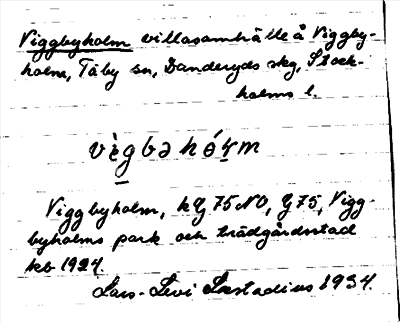 Viggbyholm villasamhälle å Viggby-
holm, Täby sn, Danderyds skg, Stock-
holms l.
vìgbə hólm
Viggbyholm, kg 75 NO, g 75, Vigg-
byholms park och trädgårdsstad
kb 1924.
Lars-Levi Læstadius 1934.